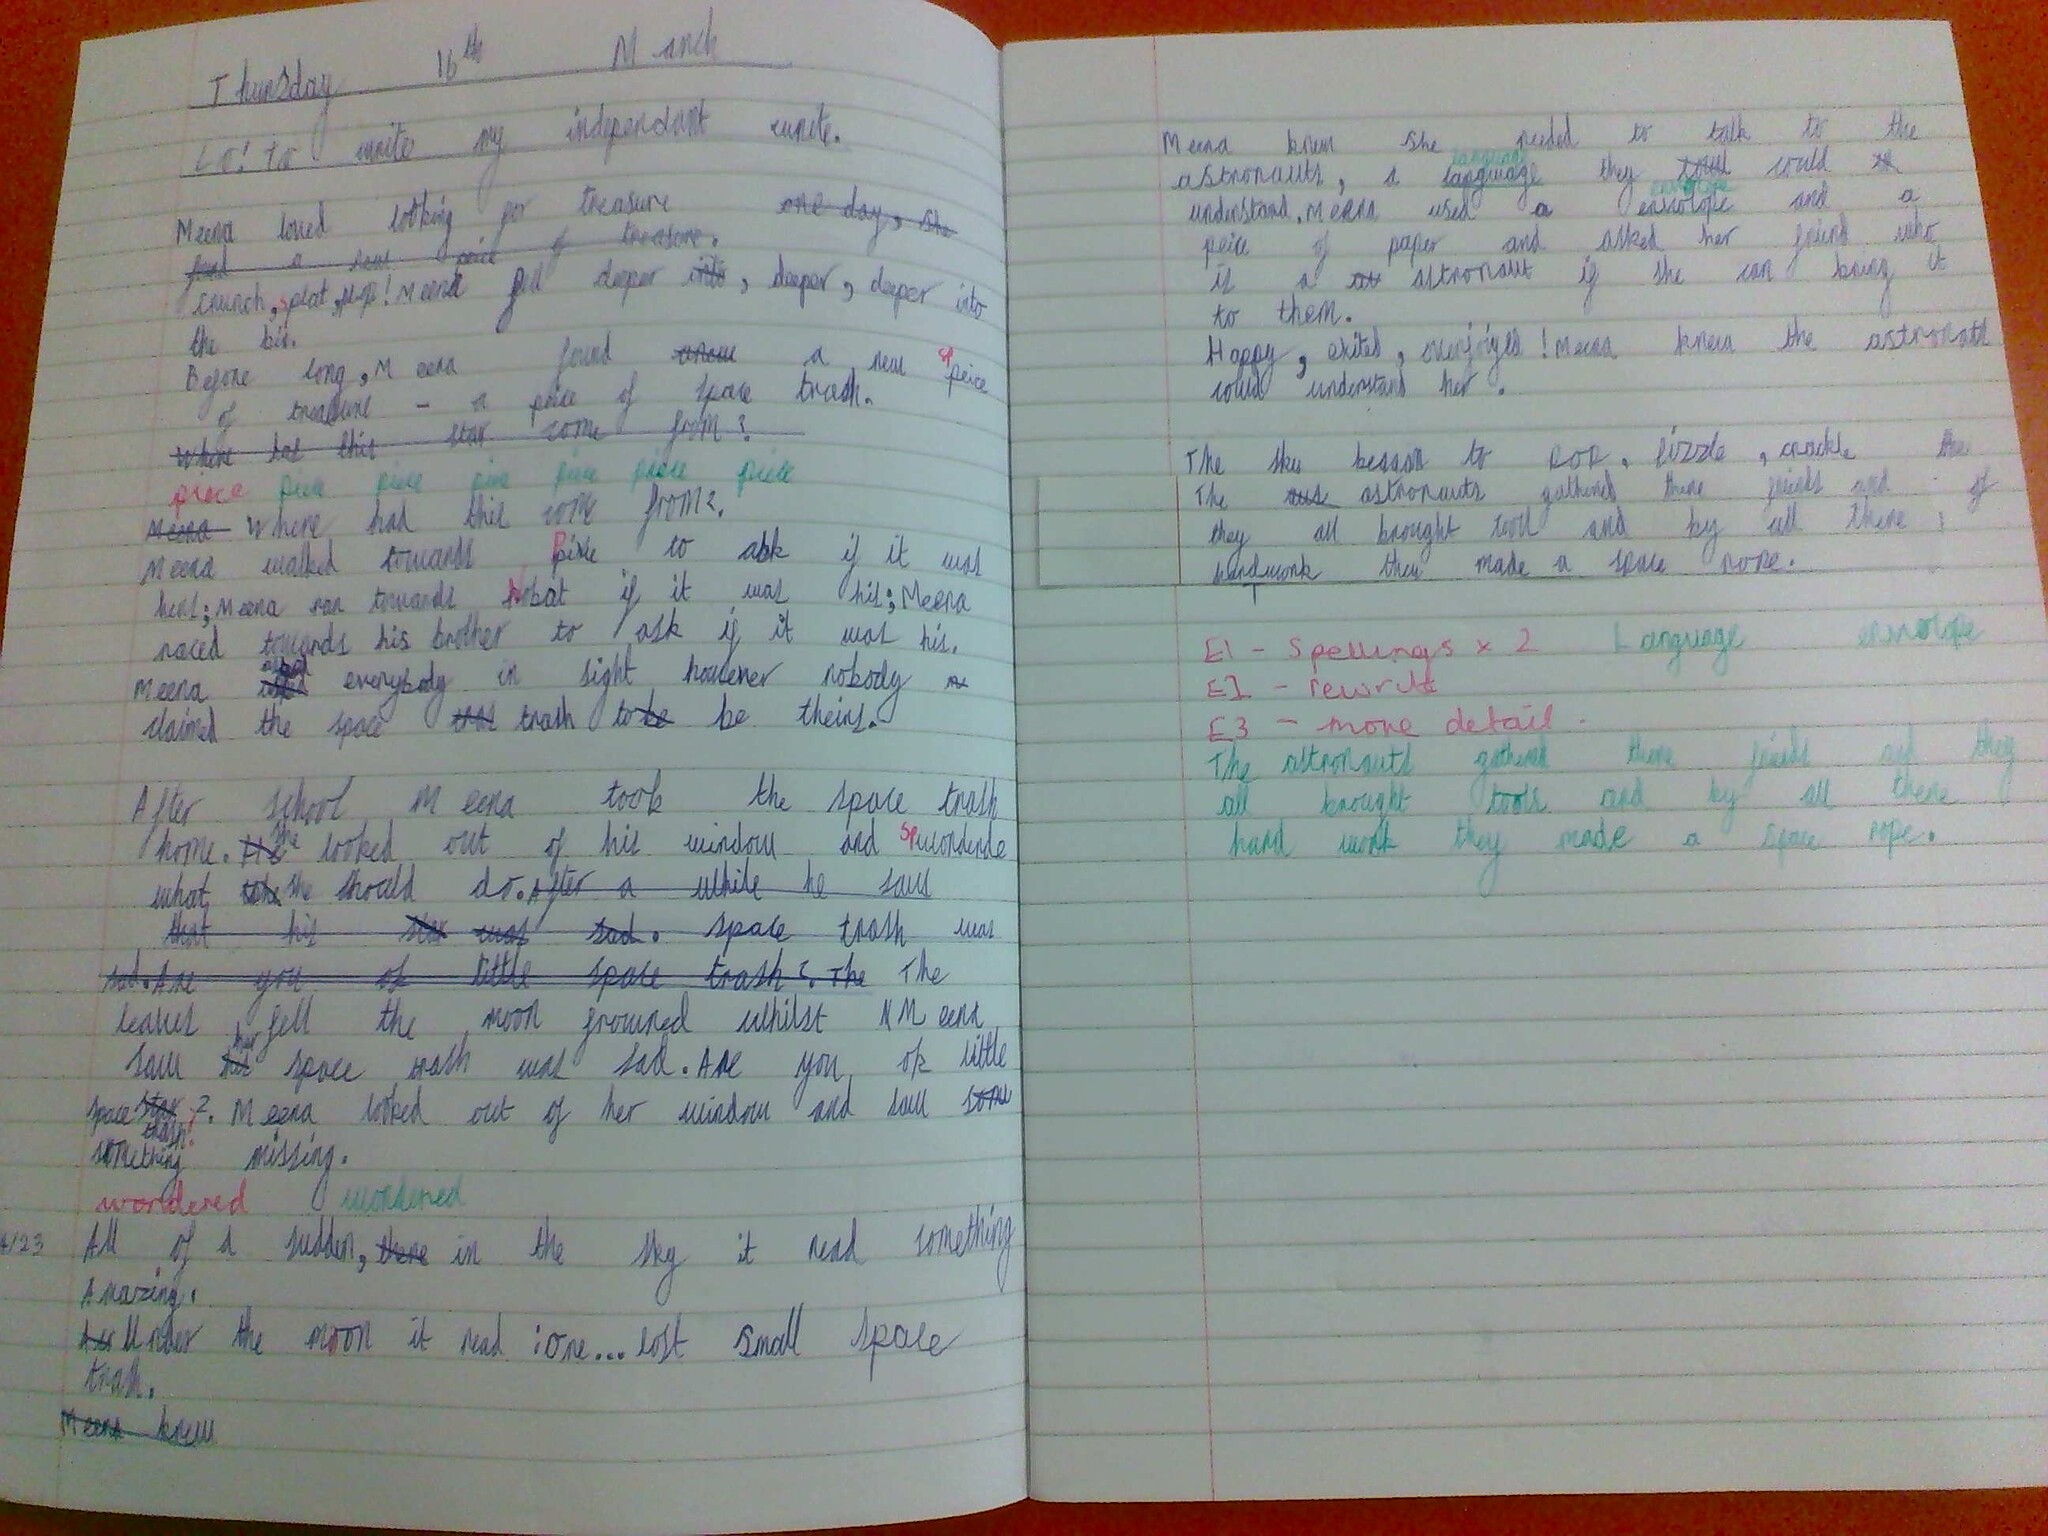 Thursday 16th March
LO: to write my independant write.
Meena loved looking for treasure one day, she
a new of treasure.
crunch, splat, ! Meena fell deeper into, deeper, deeper into
the bin.
Before long, Meena found a new sp peice
of treasure - a peice of space trash.
Where has this star come from?
piece piece piece piece piece piece piece
Meena Where had this come from?.
Meena walked towards to ask if it was
hers; Meena ran towards if it was his; Meena
raced towards his brother to ask if it was his.
Meena asked everybody in sight however nobody
claimed the space trash to be be theirs.
After school Meena took the space trash
home. she looked out of his window and sp
what she should do. After a while he saw
that his star was sad. space trash was
sad. Are you ok little space trash?. The The
leaves fell the moon frowned whilst Meena
saw his her space trash was sad. Are you ok little
space star trash ?. Meena looked out of her window and saw some
something missing.
wondered wondered
4/23 All of a sudden, there in the sky it read something
Amazing.
Under the moon it read : One... lost small space
trash.
Meena knew
Meena knew she needed to talk to the
language
astronauts, a language they could
understand. Meena used a and a
peice of paper and asked her friend who
is a astronaut if she can bring it
to them.
Happy, exited, overjoyed ! Meena knew the
could understand her.
The sky to pop, fizzle, crackle the
The astronauts gathered there friends and of
they all brought tools and by all there
hardwork they made a space rope.
E1 - Spellings x 2 Language
E2 - rewrite
E3 - more detail.
The astronauts gathered there friends and they
all brought tools and by all there
hard work they made a space rope.